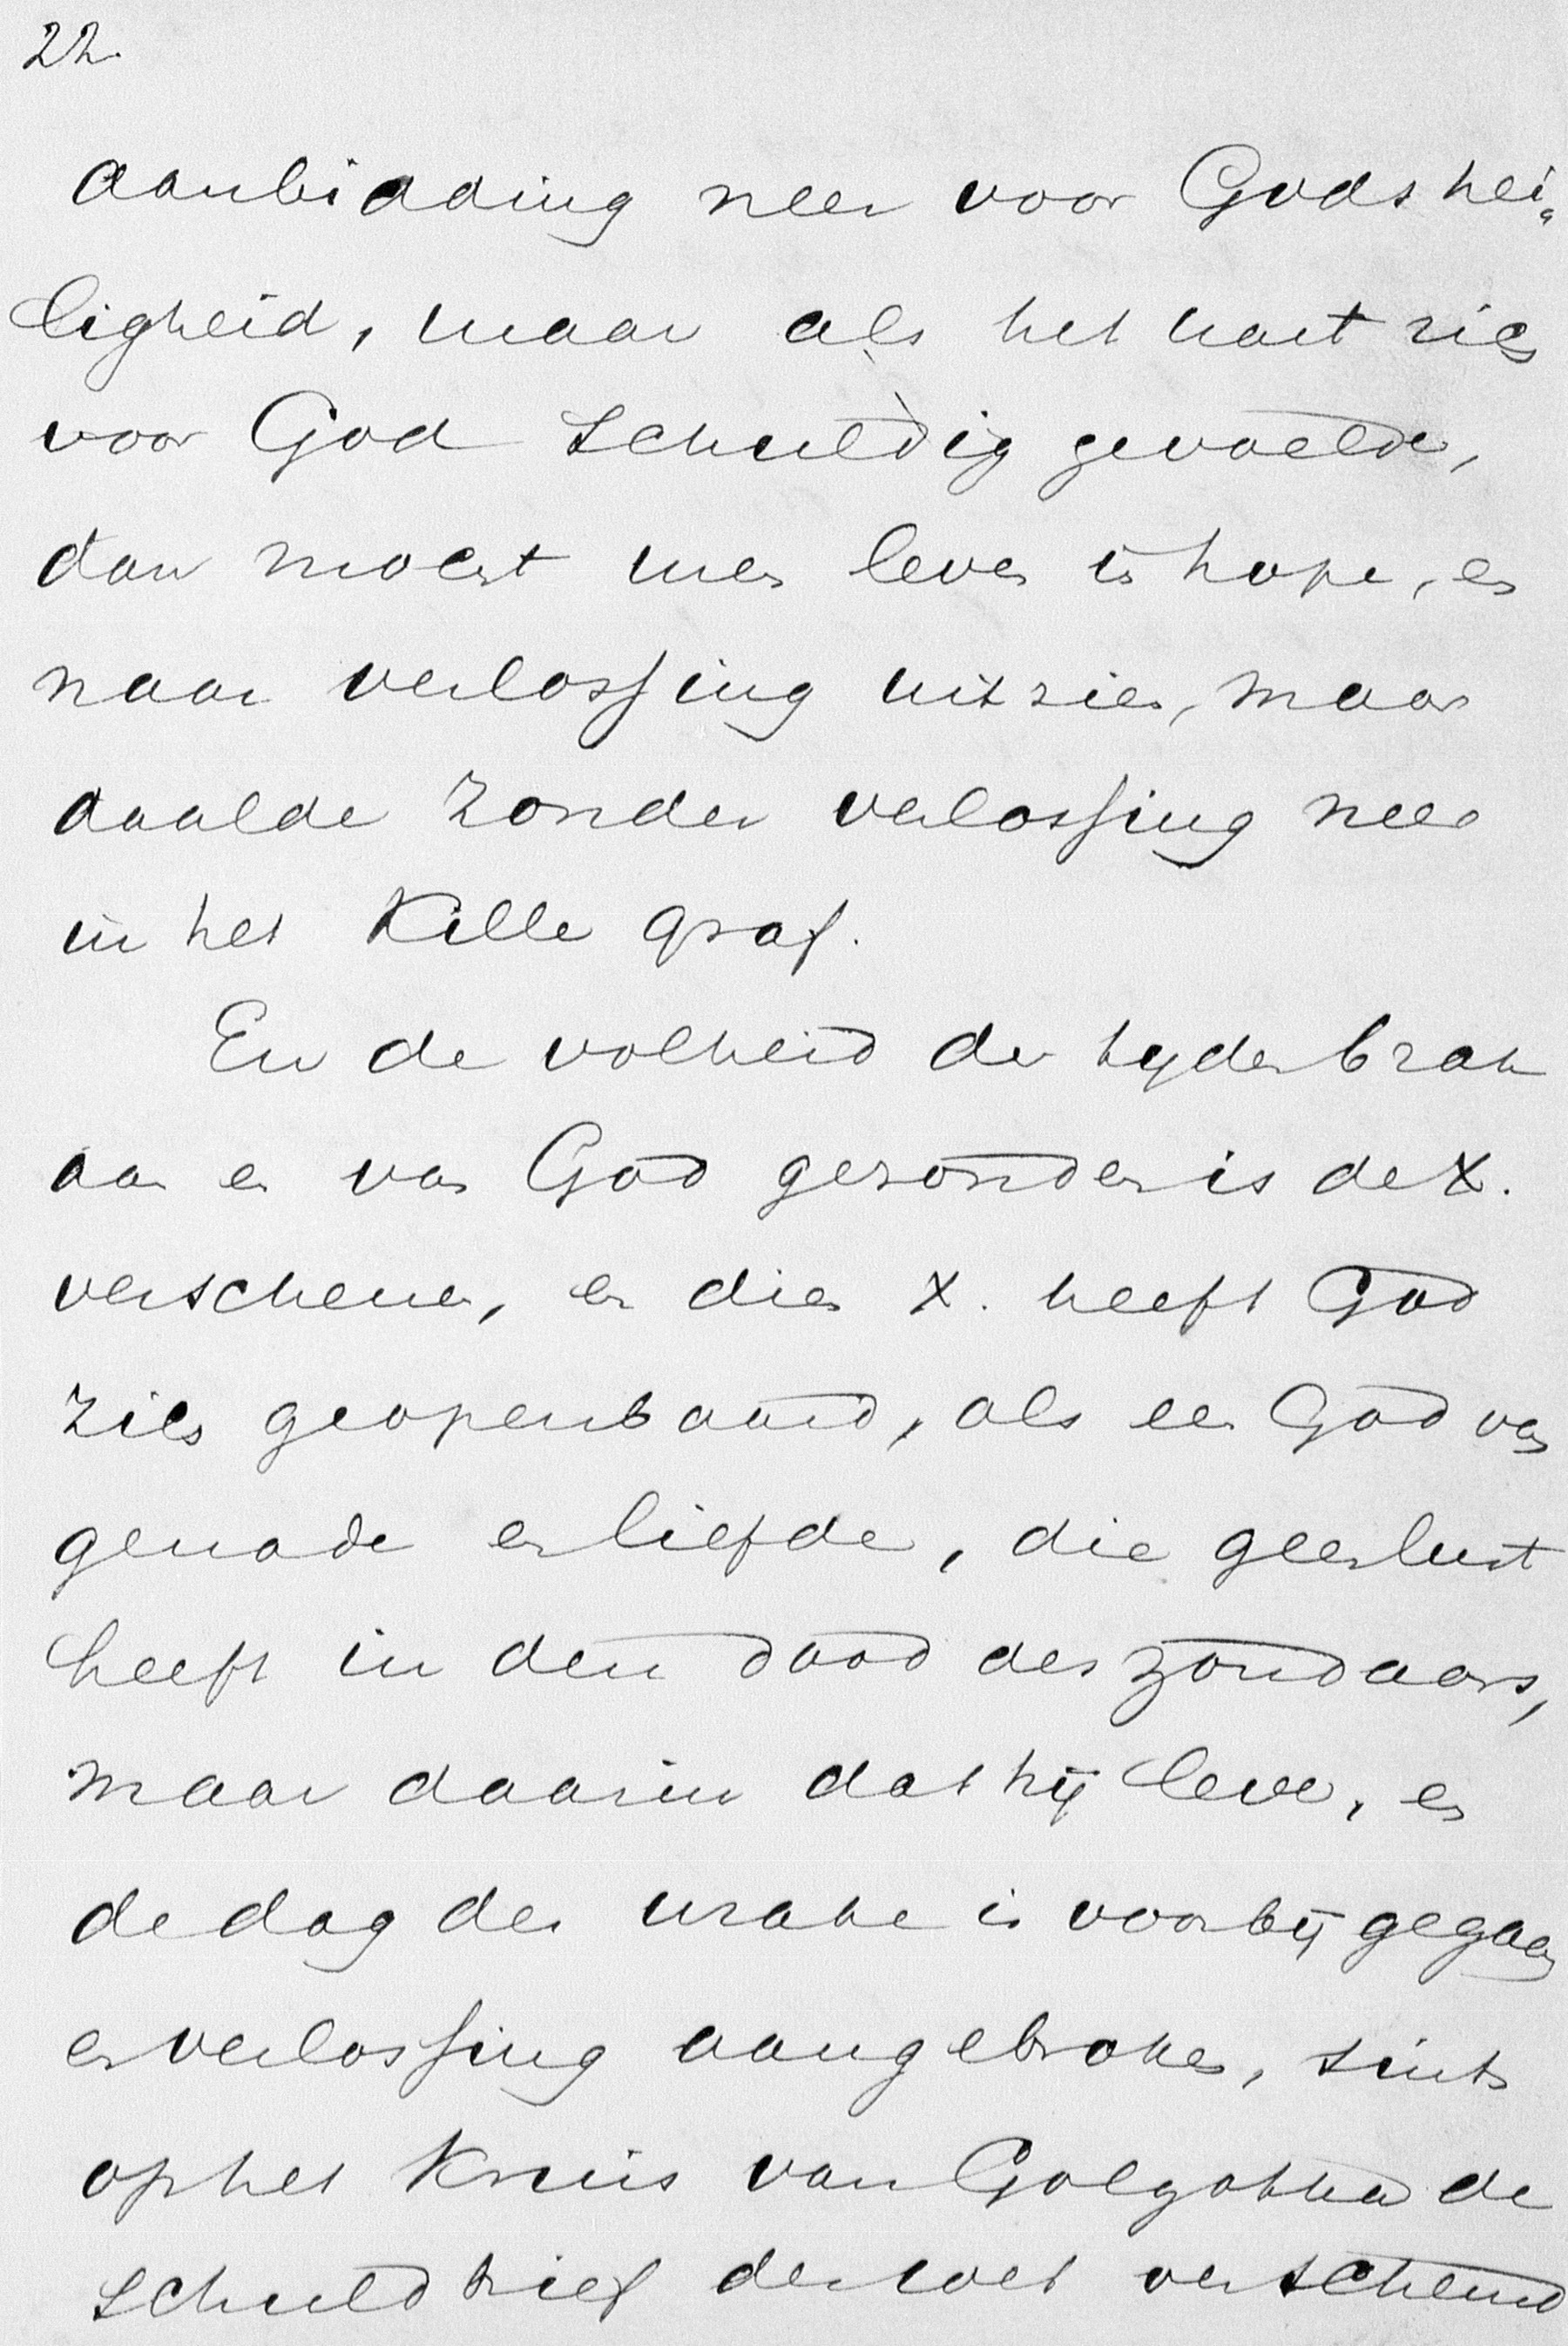 22.
aanbidding neer voor Gods hei„
ligheid, maar als het hart zich
voor God schuldig gevoelde,
dan moest men leven in hope, en
naar verlossing uitzien, maar
daalde zonder verlossing neer
in het kille graf.
En de volheid der tyden brak
aan en van God gezonden is de X.
verschenen, en dien X. heeft God
zich geopenbaard, als een God van
genade en liefde, die geen lust
heeft in den dood des zondaars,
maar daarin dat hij leve, en
de dag der wrake is voorbij gegaan
en verlossing aangebroken, sints
op het Kruis van Golgotha de
schuldbrief der wet verscheurd